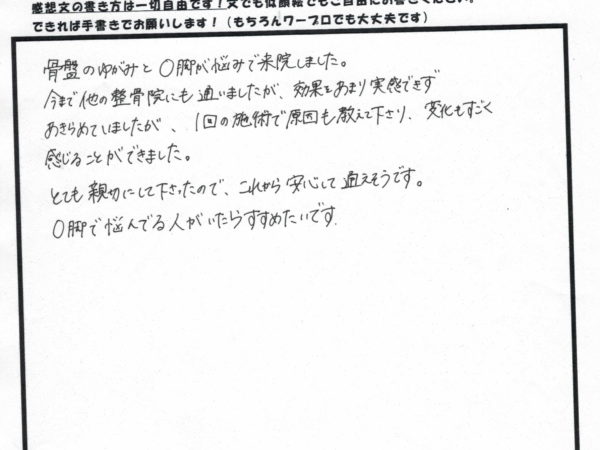 感想文の書き方は一切自由です！文でも似顔絵でもご自由にお書きください。
できれば手書きでお願いします！（もちろんワープロでも大丈夫です）
骨盤のゆがみとO脚が悩みで来院しました。
今まで他の整骨院にも通いましたが、効果をあまり実感できず
あきらめていましたが、1回の施術で原因も教えて下さり、変化もすごく
感じることができました。
とても親切にして下さったので、これから安心して通えそうです。
O脚で悩んでる人がいたらすすめたいです.